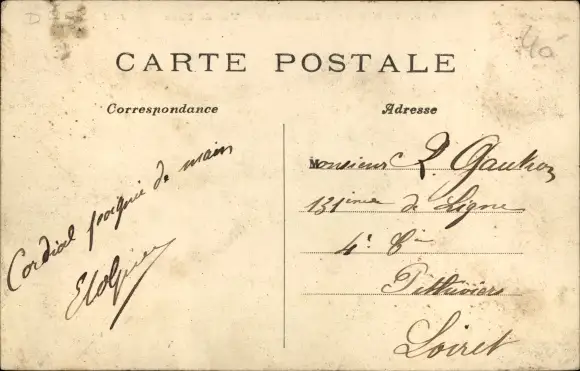 CARTE POSTALE
Correspondance
Adresse
Cordial poignée de main
Monsieur R. Gautron
131ième de Ligne
4e Cie
Pithiviers
Loiret